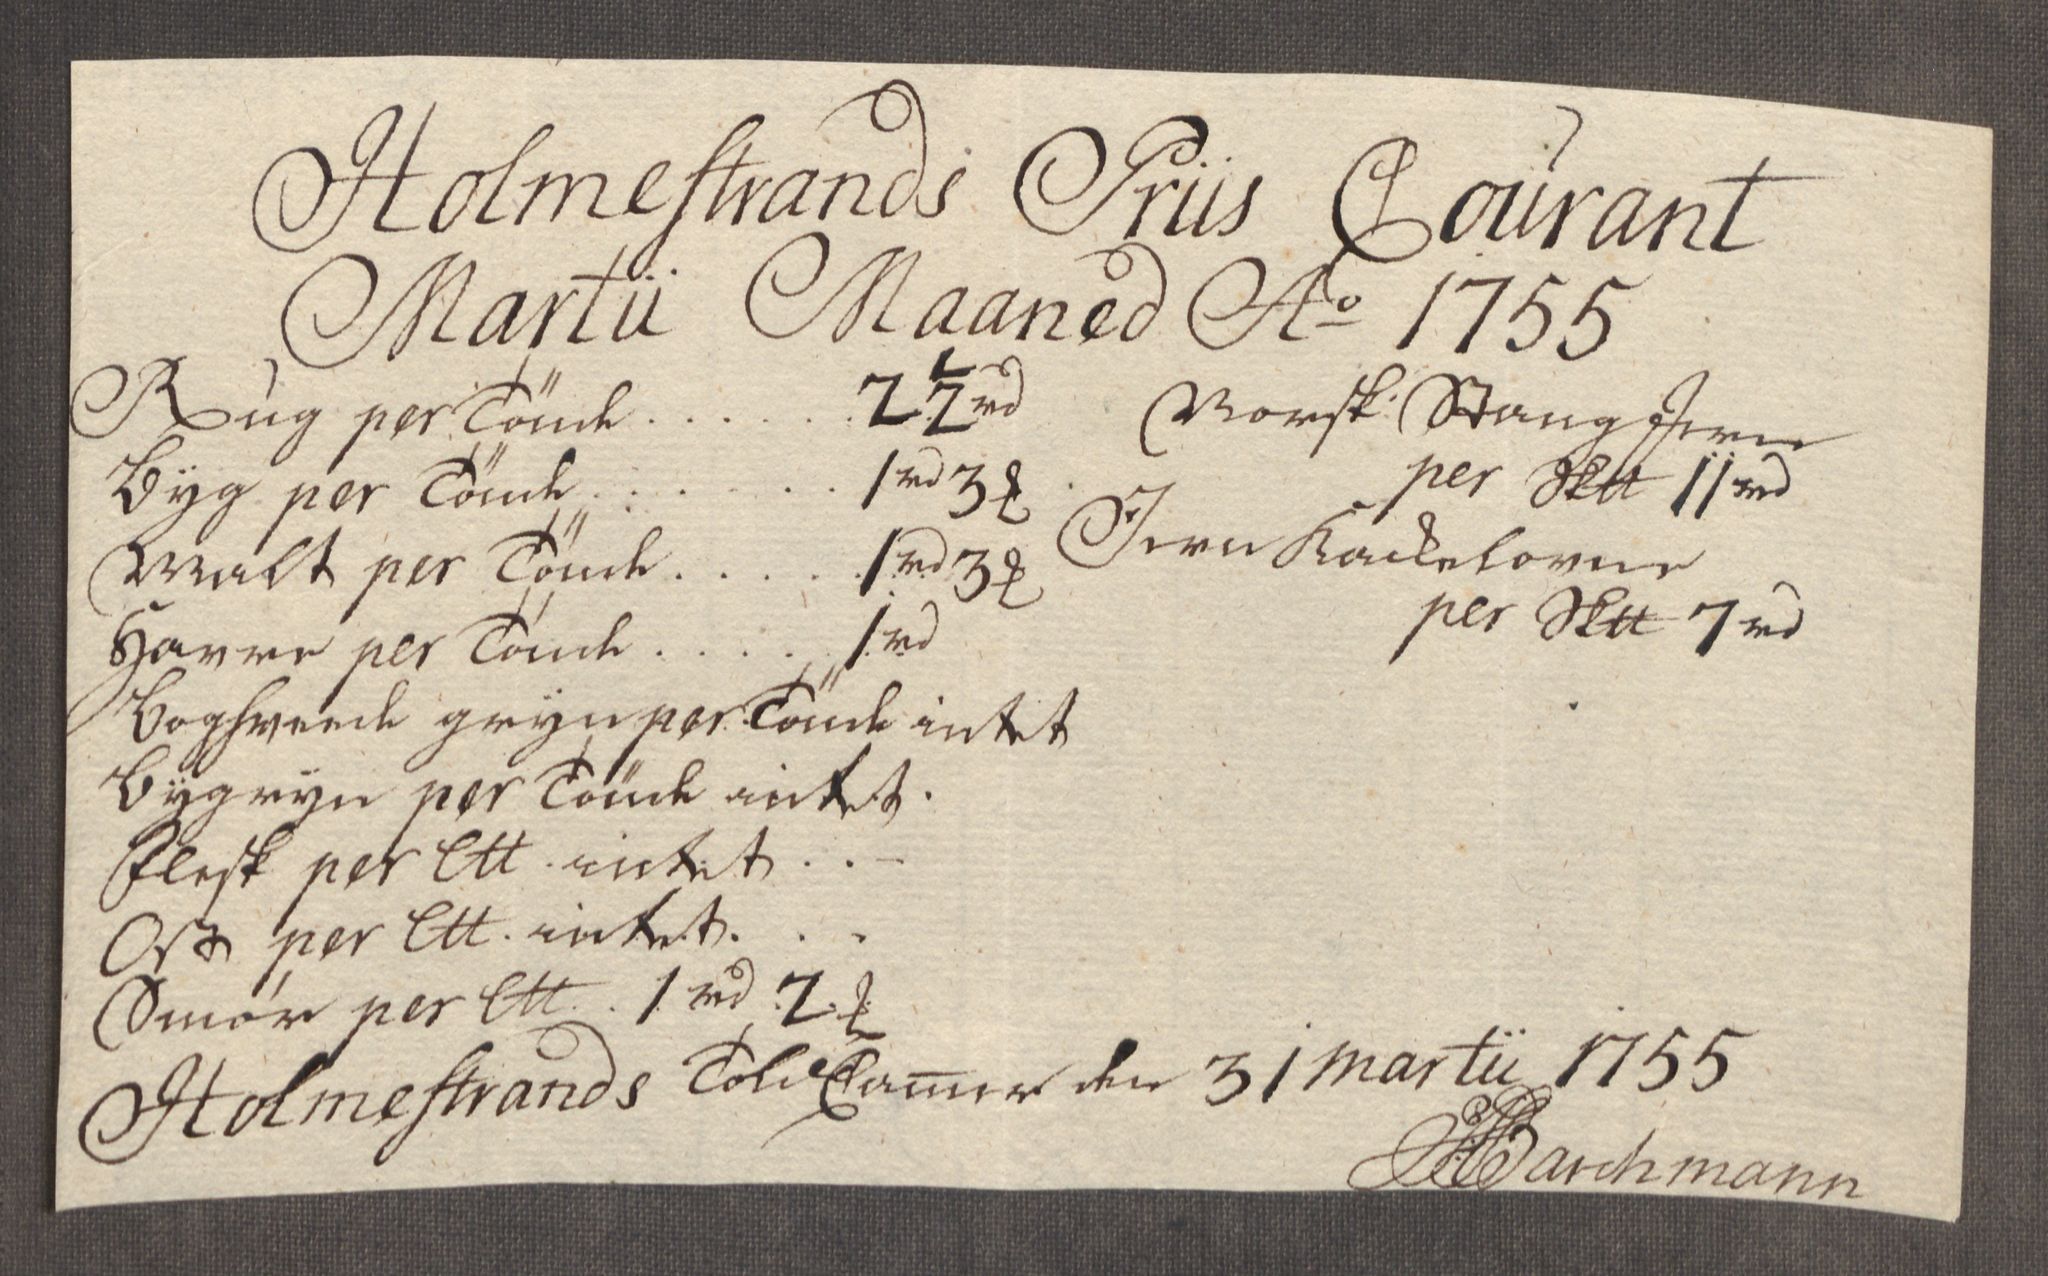 Holmestrands Priis Courant
Martii Maaned Ao 1755
Rug per Tönde . . . . . . 2 1/2 rd
Byg per Tönde . . . . . . 1 rd 3 ℥
Malt per Tönde . . . . . 1 rd 3 ℥
Havre per Tönde . . . . . 1 rd
Boghveede gryn per Tönde intet
Bygryn per Tönde intet.
Flesk per C℔ intet . . -
Ost per C℔. intet. . -
Smör per C℔. . 1 rd 2 ℥
Norsk Stang Jern
per Sk℔ 11 rd
Jern Kackelovne
per Sk℔ 7 rd
Holmestrands Told Cam̅er den 31 Martii 1755
Barchmann